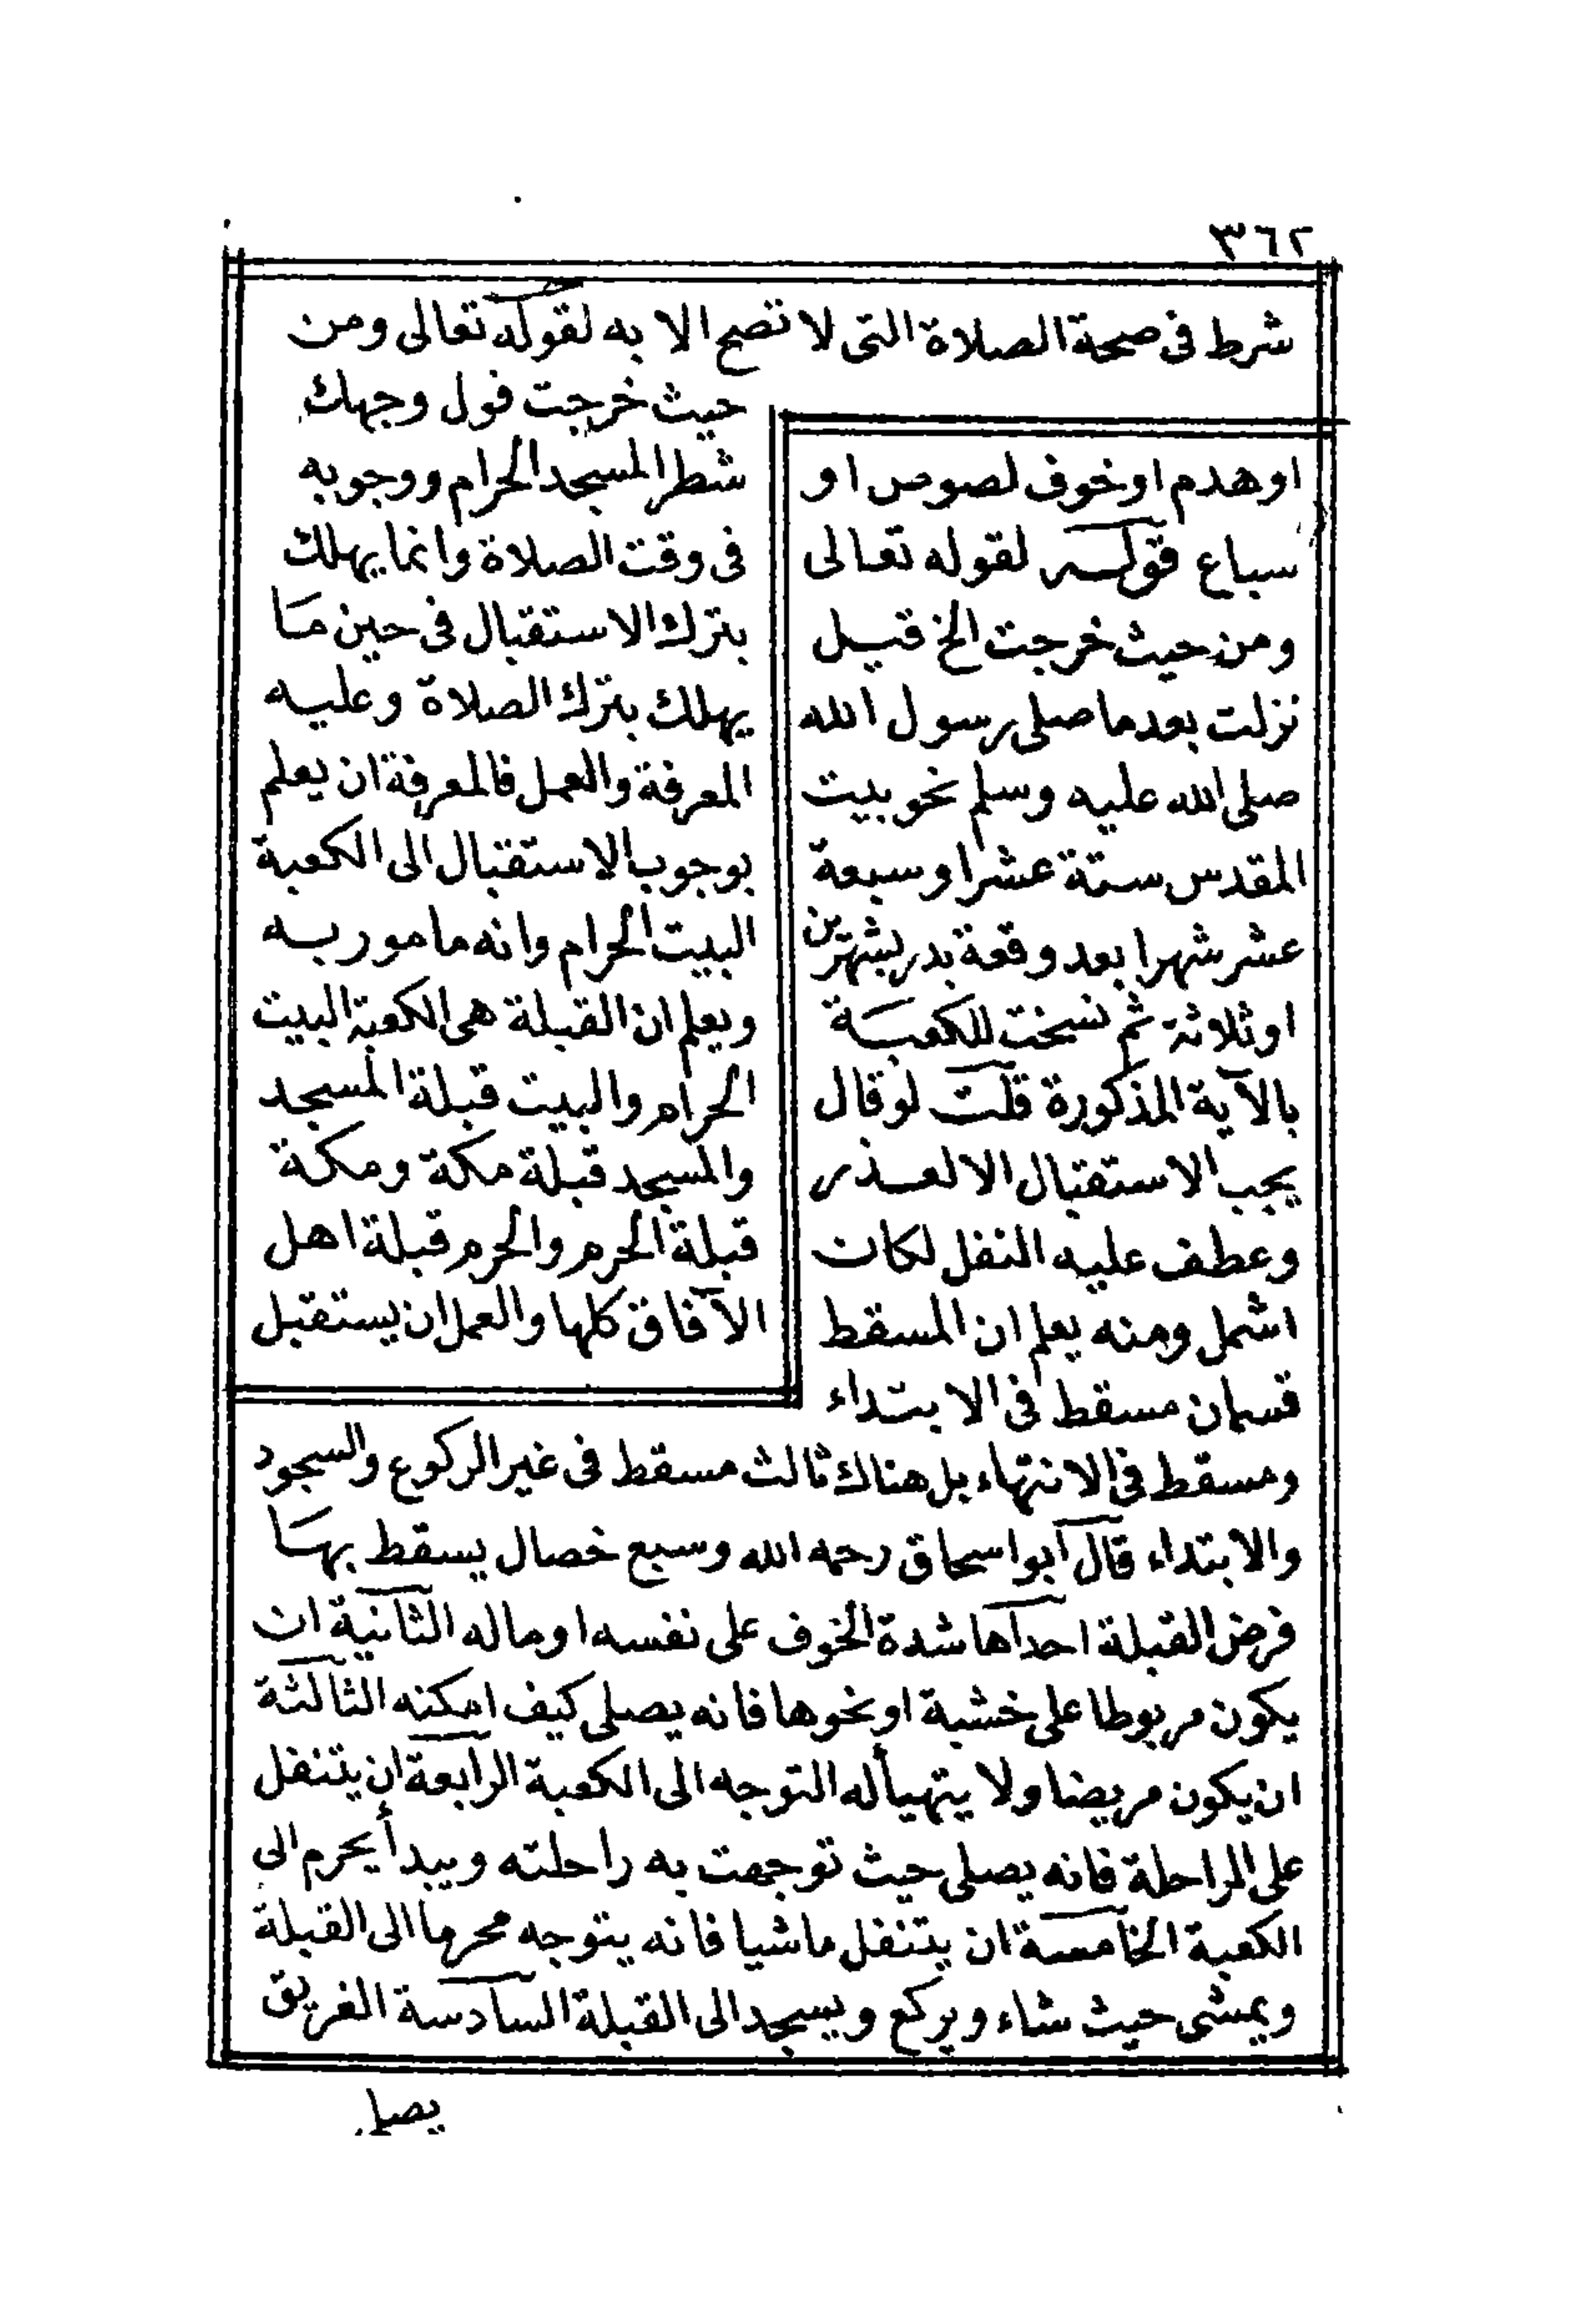 ٣٦٢
شرط فى صحة الصلاة التى لا تصح الا به لقوله تعالى ومن
حيث خرجت فول وجهك
شطر المسجد الحرام ووجوبه
فى وقت الصلاة وانما يهلك
بترك الاستقبال فى حين مَا
يهلك بترك الصلاة وعليه
المعرفة والعمل فالمعرفة ان يعلم
بوجوب الاستقبال الى الكعبة
البيت الحرام وانه مامور به
ويعلم ان القبلة هى الكعبة البيت
الحرام والبيت قبلة المسجد
والمسجد قبلة مكة ومكة
قبلة الحرم والحرم قبلة اهل
الآفاق كلها والعمل ان يستقبل
او هدم او خوف لصوص او
سباع قوله لقوله تعالى
ومن حيث خرجت الخ قيل
نزلت بعد ما صلى رسول الله
صلى الله عليه وسلم نحو بيت
المقدس ستة عشر او سبعة
عشر شهرا بعد وقعة بدر بشهرين
او ثلاثة ثم نسخت للكعبَة
بالآية المذكورة قلت لو قال
يجب الاستقبال الا لعذر
وعطف عليه النفل لكان
اشمل ومنه يعلم ان المسقط
قسمان مسقط فى الابتداء
ومسقط فى الانتهاء بل هناك ثالث مسقط فى غير الركوع والسجود
والابتداء قال ابو اسحاق رحمه الله وسبع خصال يسقط بهَا
فرض القبلة احداها شدة الخوف على نفسه او ماله الثانية ان
يكون مربوطا على خشبة او نحوها فانه يصلى كيف امكنه الثالثة
ان يكون مريضا ولا يتهيأ له التوجه الى الكعبة الرابعة ان يتنفل
على الراحلة فانه يصلى حيث توجهت به راحلته ويبدأ يحرم الى
الكعبة الخامسة ان يتنفل ماشيا فانه يتوجه محرما الى القبلة
ويمشى حيث شاء ويركع ويسجد الى القبلة السادسة الغريق
يصلى